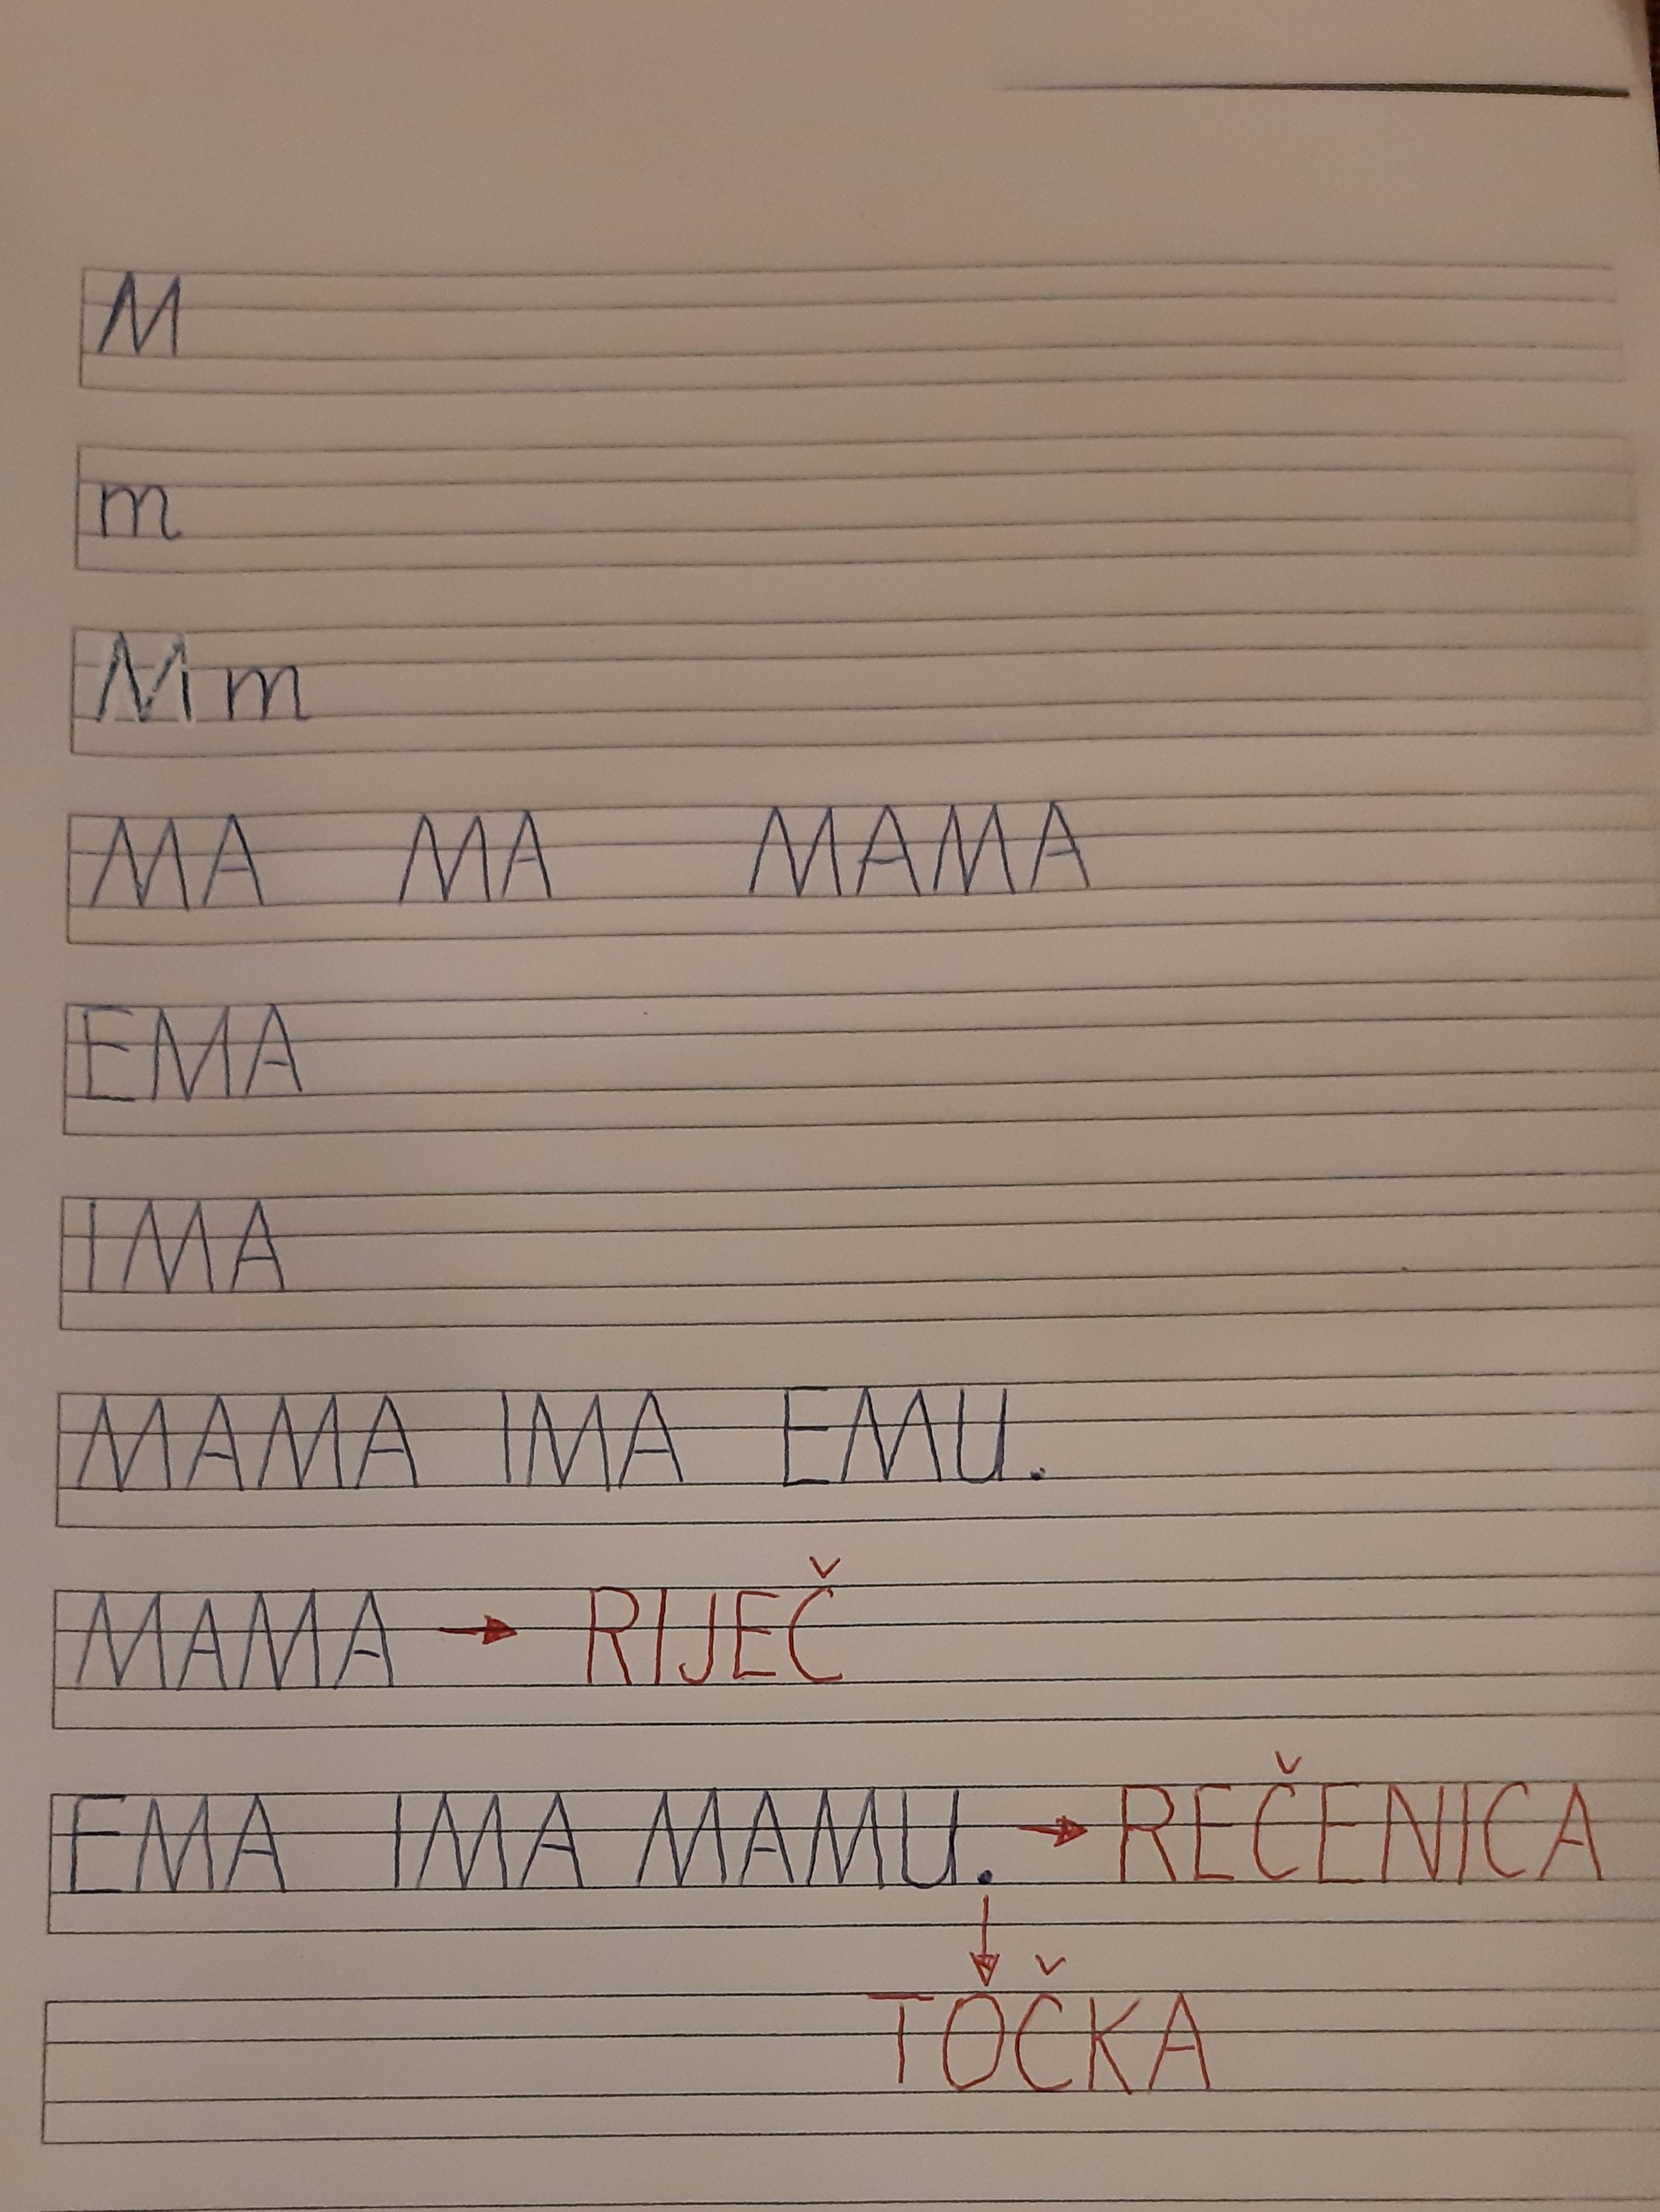 M
m
M m
MA MA MAMA
EMA
IMA
MAMA IMA EMU.
MAMA → RIJEČ
EMA IMA MAMU. → REČENICA
TOČKA